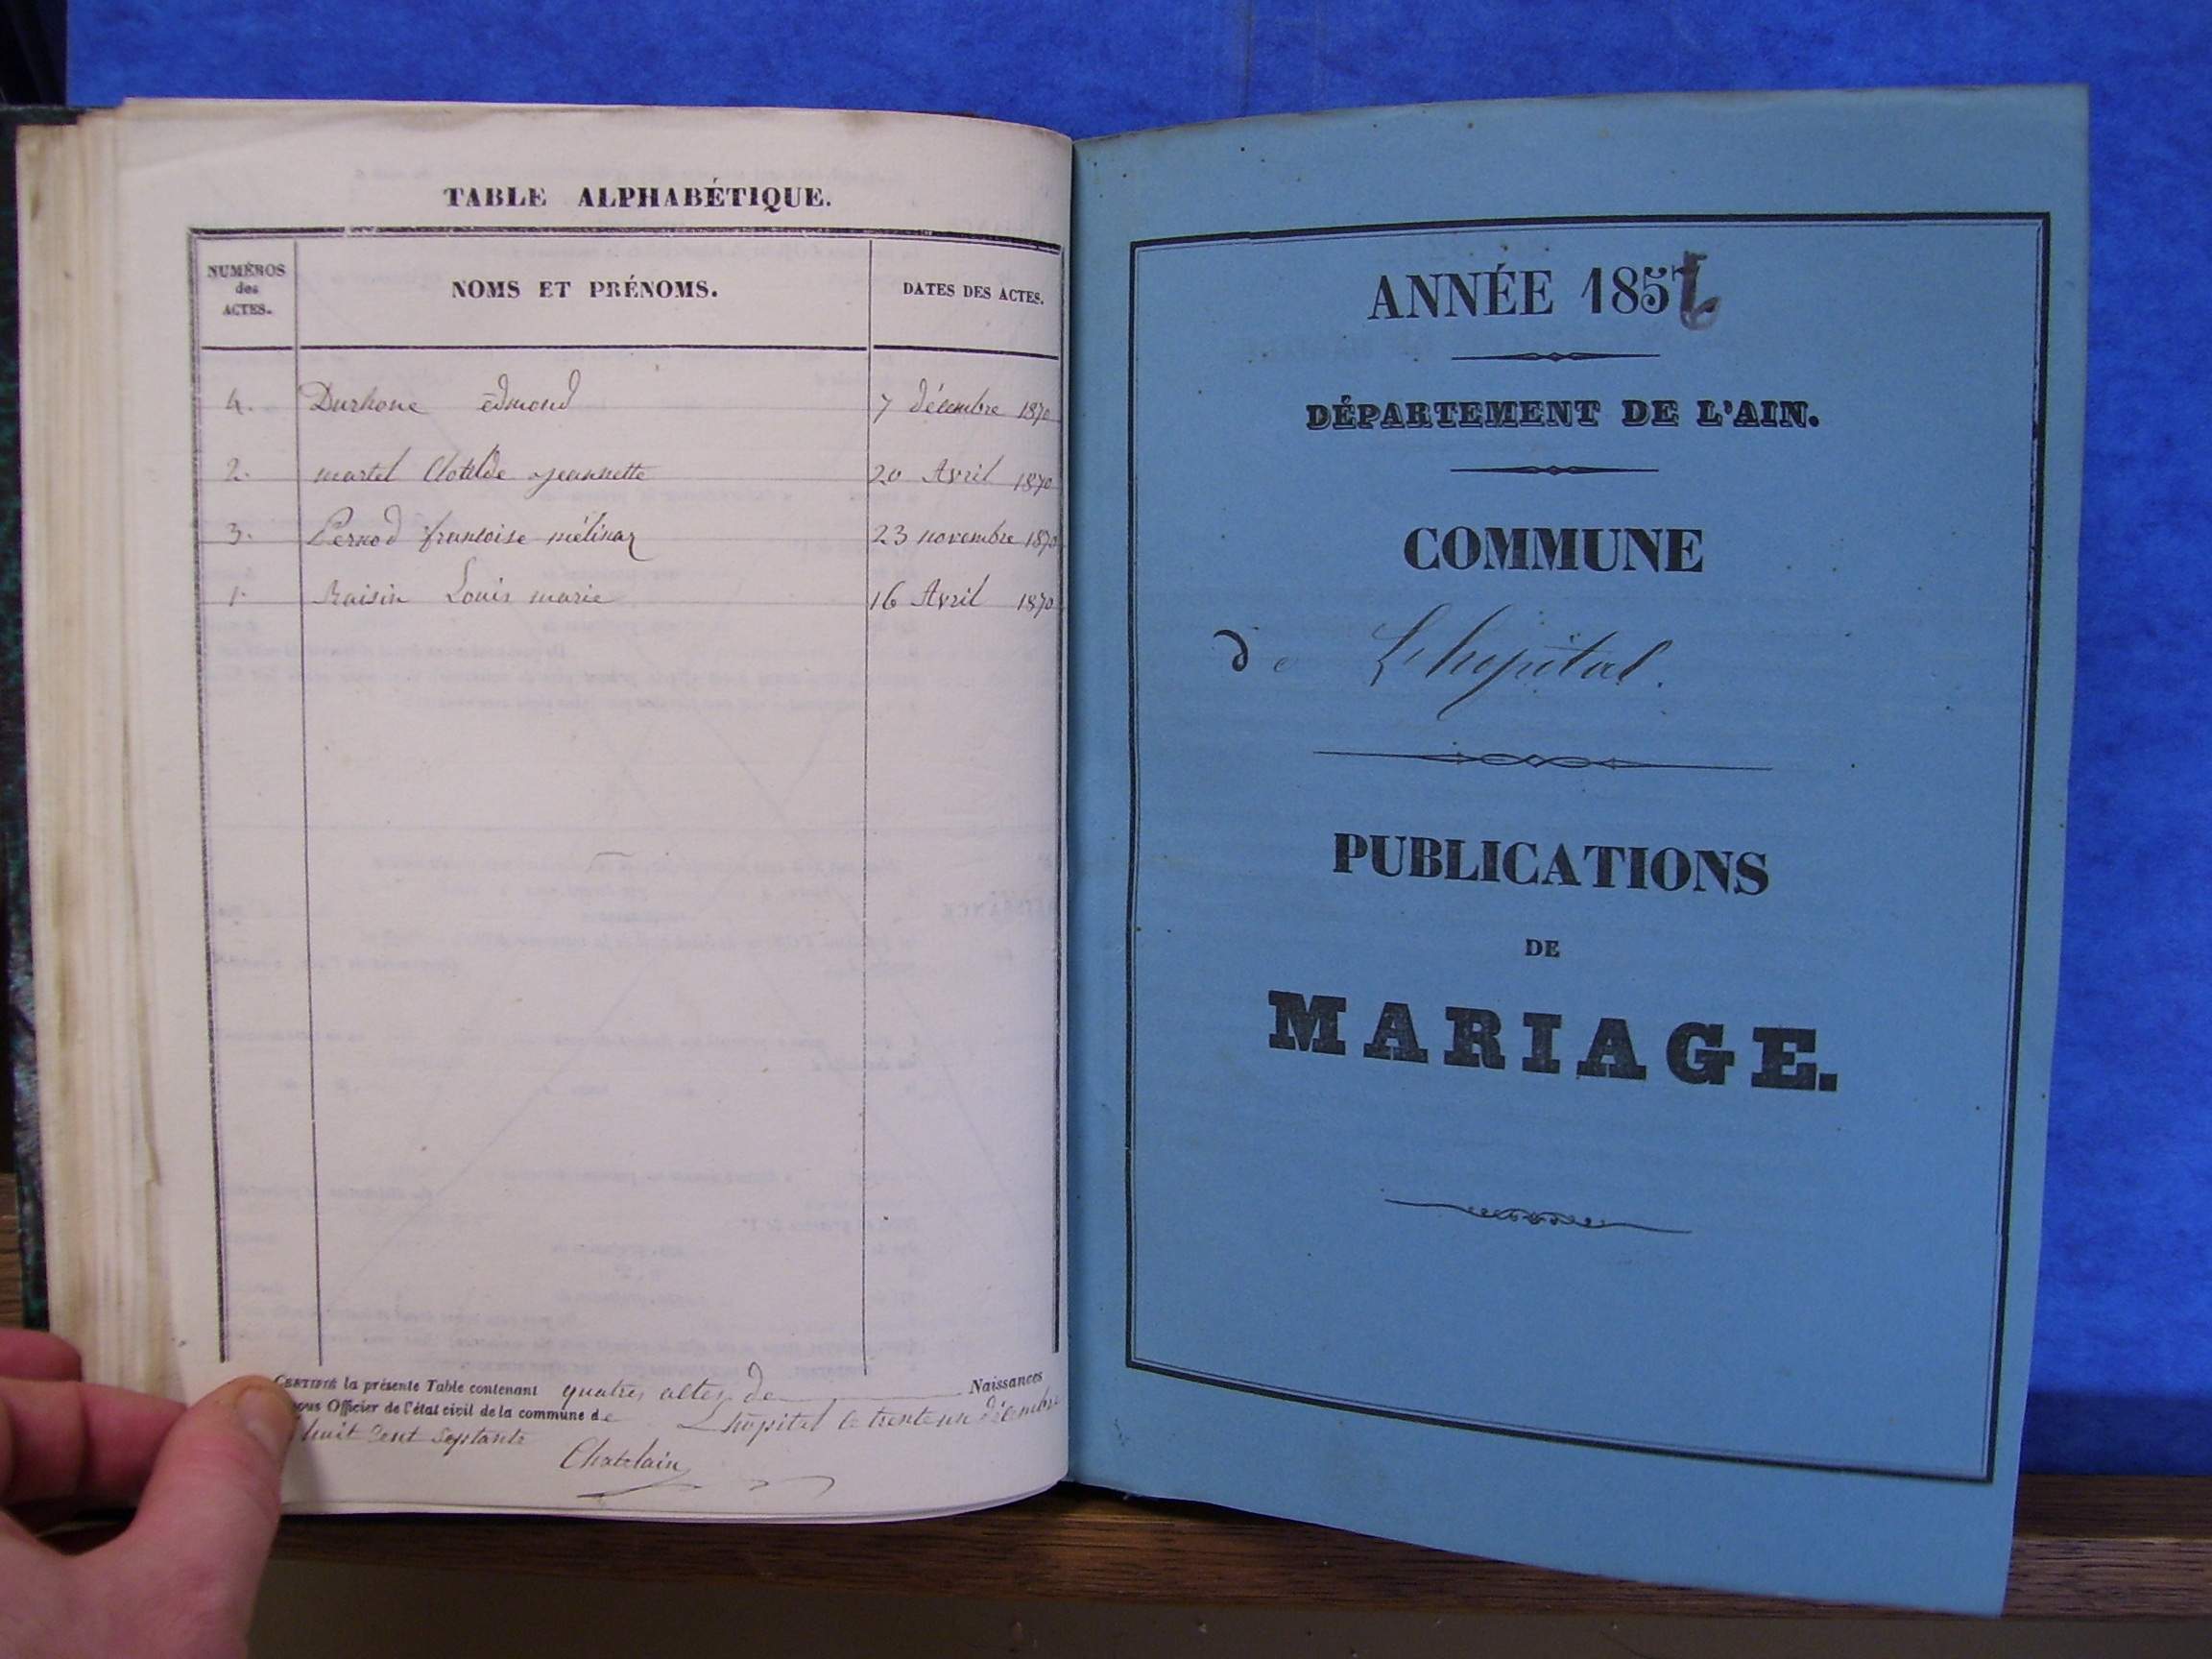 TABLE ALPHABÉTIQUE.
NUMÉROS des ACTES.
NOMS ET PRÉNOMS.
DATES DES ACTES.
4. Durhone édmond 7 décembre 1870
2. martel Clotilde jeannette 20 Avril 1870
3. Pernod francoise mélinaz 23 novembre 1870
1. Raisin Louis marie 16 Avril 1870
CERTIFIÉ la présente Table contenant quatres actes de Naissances
nous Officier de l'état civil de la commune de L'hôpital le trente un décembre
huit Cent Septante
Chatelain
ANNÉE 1856
DÉPARTEMENT DE L'AIN.
COMMUNE
de Lhopital.
PUBLICATIONS
DE
MARIAGE.